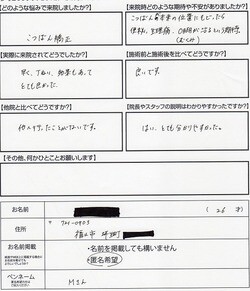 【どのような悩みで来院しましたか?】
こつばん矯正
【来院時どのような期待や不安がありましたか?】
こつばんが本来の位置にもどったら
便秘、生理痛、
【実際に来院されてどうでしたか?】
早く、丁ねい、効果もあって
とても良かった。
【施術前と施術後を比べてどうですか?】
良いです。
【他院と比べてどうですか?】
他へ行ったことがないです。
【院長やスタッフの説明はわかりやすかったですか?】
はい、とても分かりやすかった。
【その他、何かひとことお願いします】
お名前
(26才)
ご住所
〒721-0903
福山市坪生町
お名前掲載
・名前を掲載しても構いません
・匿名希望
ペンネーム
M さん